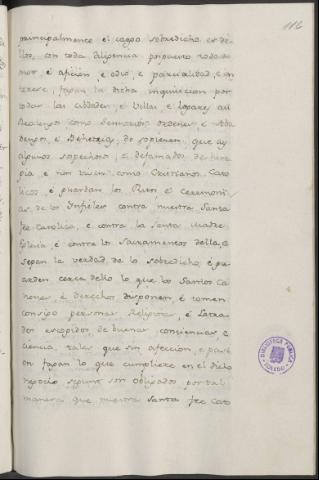 116
principalmente el cargo sobredicho es de
llos, con toda diligencia pospuesto todo te
mor, è aficion, è odio, è parcialidad, è in
terese, fagan la dicha inquisicion por
todas las cibdades, è Villas, è logares asi
Realengos como Señorios ordenes, è Aba
dengos, è Behetrias, do sopieren que ay
algunos sospechosos, è defamados de here
gia, è non viven como Cristianos Cato
licos, è guardan los Ritos è ceremoni
as de los Infieles contra nuestra Santa
fee Catolica, è contra la Santa Madre
Iglesia, è contra los Sacramentos della, è
sepan la verdad de lo sobredicho, è gu
arden cerca dello lo que los Santos Ca
nones, è derechos disponen, è tomen
consigo personas Religiosas, è Letra
dos escogidos, de buenas conciencias, è
ciencia, tales que sin afeccion, è pasi
on fagan lo que cumpliere en el dicho
negocio segunt son obligados por tal
manera que nuestra Santa fee Cato
BIBLIOTECA PÚBLICA
TOLEDO